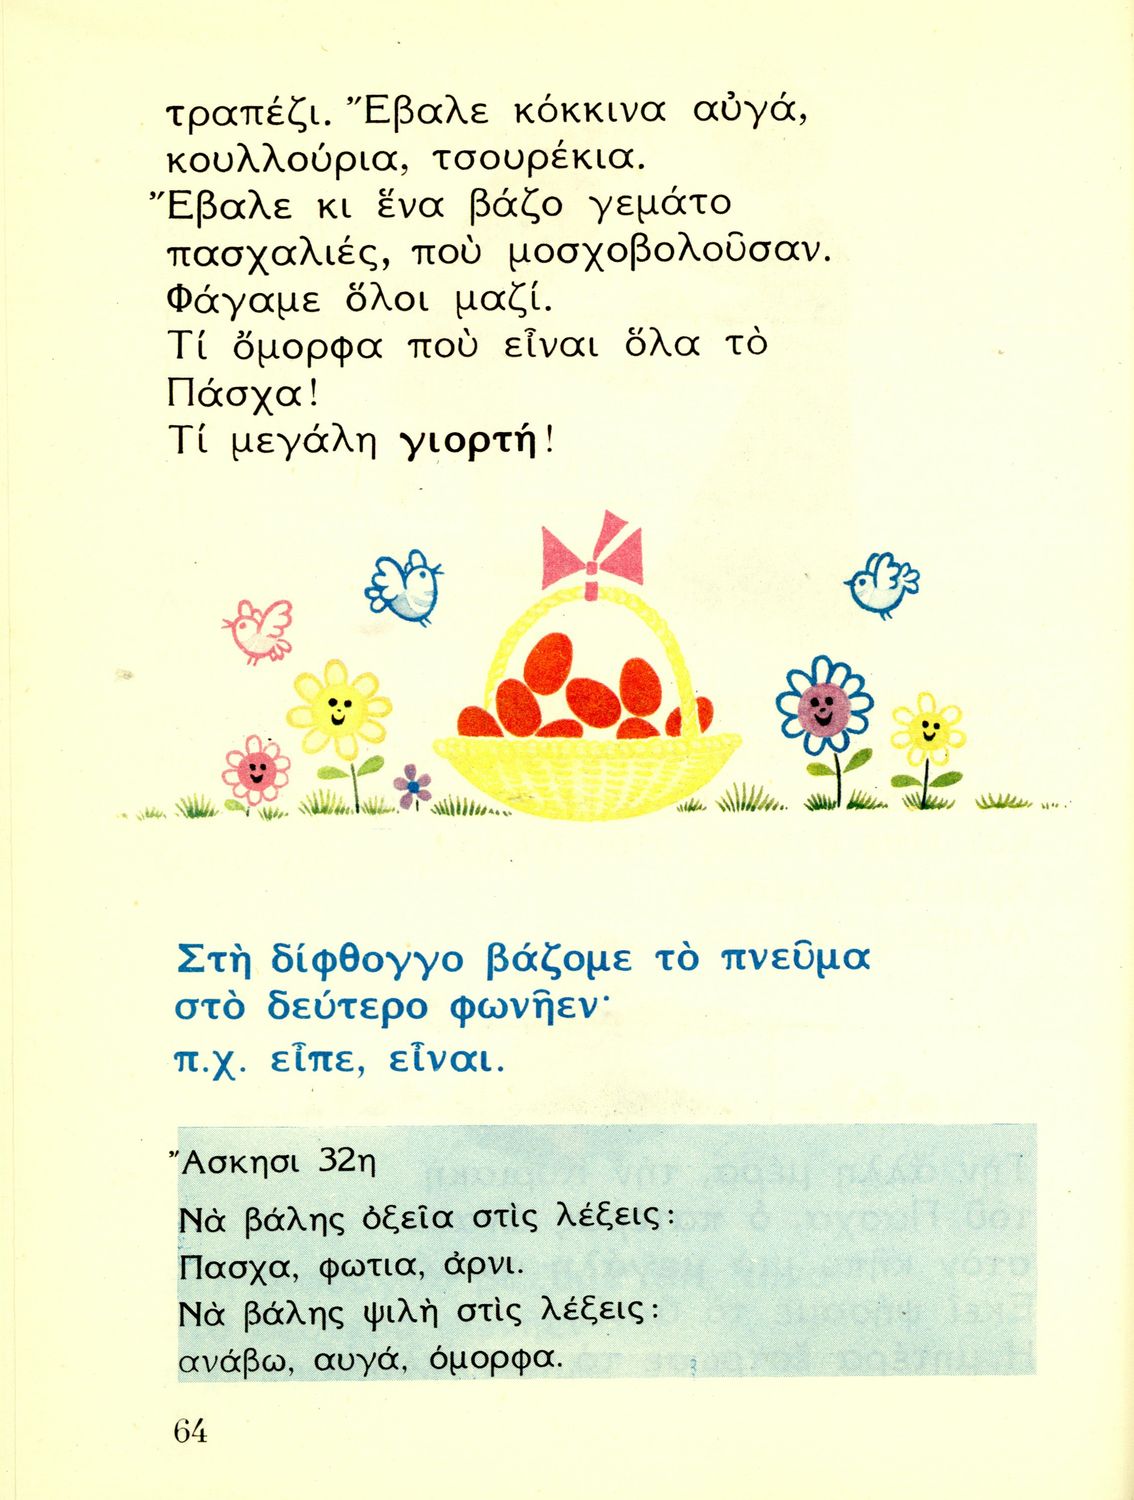 τραπέζι. Ἔβαλε κόκκινα αὐγά,
κουλλούρια, τσουρέκια.
Ἔβαλε κι ἕνα βάζο γεμάτο
πασχαλιές, ποὺ μοσχοβολοῦσαν.
Φάγαμε ὅλοι μαζί.
Τί ὄμορφα ποὺ εἶναι ὅλα τὸ
Πάσχα!
Τί μεγάλη γιορτή!
Στὴ δίφθογγο βάζομε τὸ πνεῦμα
στὸ δεύτερο φωνῆεν·
π.χ. εἶπε, εἶναι.
Ἄσκησι 32η
Νὰ βάλης ὀξεῖα στὶς λέξεις:
Πασχα, φωτια, ἀρνι.
Νὰ βάλης ψιλὴ στὶς λέξεις:
ανάβω, αυγά, όμορφα.
64